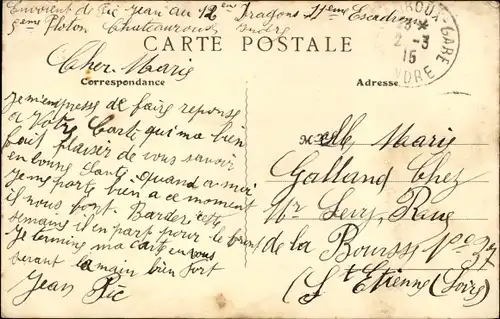 Envoient de Pic Jean au 12 em Dragons 11eme Escadron
5eme Ploton Chateauroux Indre
ROUX-GARE
3*
2-3
15
NDRE
CARTE POSTALE
Correspondance
Adresse
Cher Marie
Je m'empresse de faire reponse
a Votre Carte qui ma bien
fait plaisir de vous savoir
en bonne Santé quand a moi
Je me porte bien a ce moment
il nous font Barder cette
semaine il en part pour le front
Je termine ma carte en vous
serant la main bien fort
Jean Pic
M elle Marie
Galland Chez
Mr Levy Rue
de la Bourse No 37
(St Etienne (Loire)